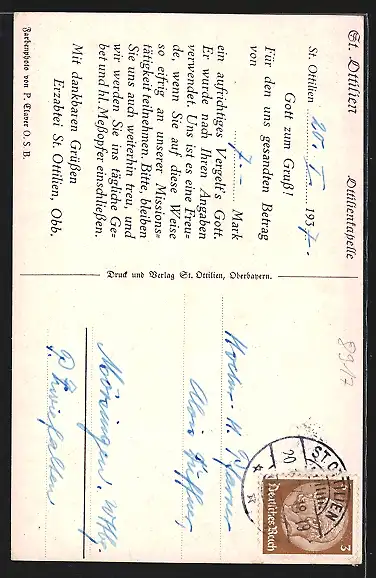 St. Ottilien Ottilienkapelle
St. Ottilien 20. I. 1937.
Gott zum Gruß!
Für den uns gesandten Betrag
von
7.- Mark
ein aufrichtiges Vergelt's Gott.
Er wurde nach Ihren Angaben
verwendet. Uns ist es eine Freu=
de, wenn Sie auf diese Weise
so eifrig an unserer Missions=
tätigkeit teilnehmen. Bitte, bleiben
Sie uns auch weiterhin treu, und
wir werden Sie ins tägliche Ge=
bet und hl. Meßopfer einschließen.
Mit dankbaren Grüßen
Erzabtei St. Ottilien, Obb.
Farbenphoto von P. Claver O. S. B.
Druck und Verlag St. Ottilien, Oberbayern.
8917
ST OTTILIEN
20
Deutsches Reich
3
Hochw. H. Pfarrer
Alois
Möringen, Wttbg.
P. Zwiefalten